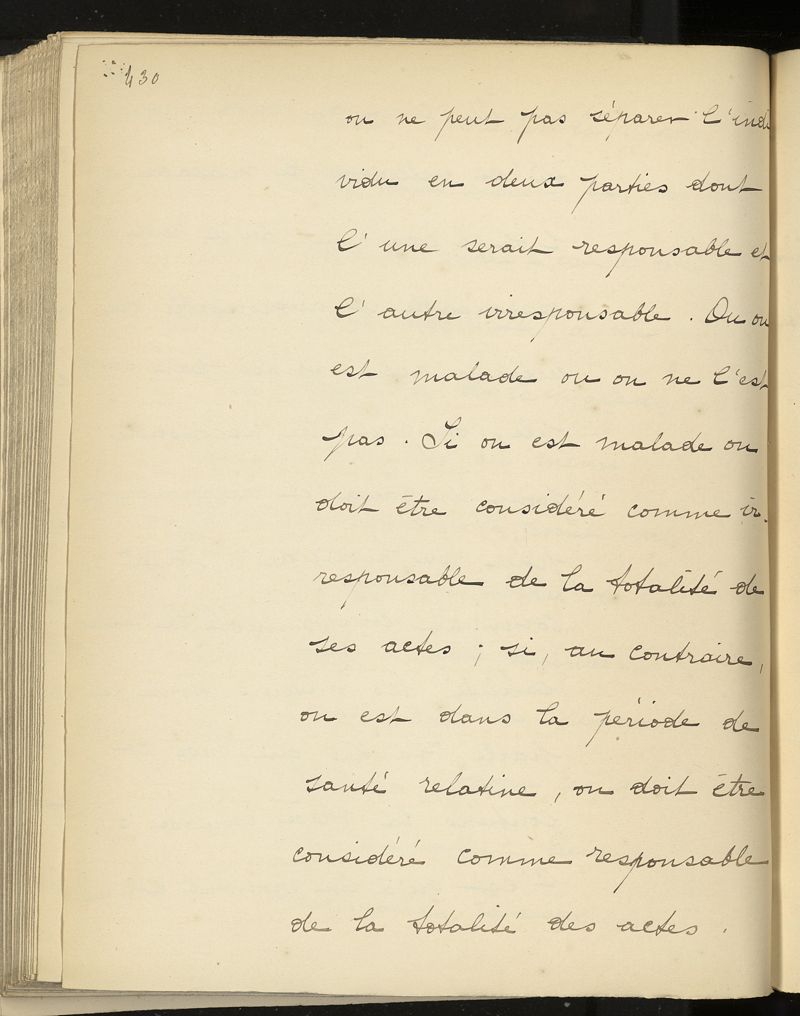 430
on ne peut pas séparer l'indi
vidu en deux parties dont
l'une serait responsable et
l'autre irresponsable. Ou on
est malade ou on ne l'est
pas. Si on est malade on
doit être considéré comme ir-
responsable de la totalité de
ses actes ; si, au contraire,
on est dans la période de
santé relative, on doit être
considéré comme responsable
de la totalité des actes.